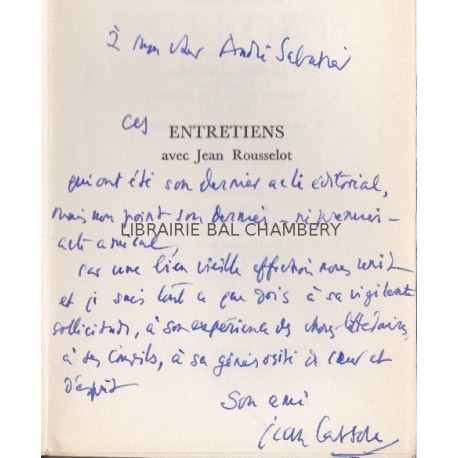 À mon cher André Sabatier
ces
ENTRETIENS
avec Jean Rousselot
qui ont été son dernier acte éditorial,
mais non point son dernier – ni premier –
acte amical,
LIBRAIRIE BAL CHAMBERY
car une bien vieille affection nous unit
et je sais tout ce que dois à sa vigilante
sollicitude, à son expérience des choses littéraires,
à ses conseils, à sa générosité de cœur et
d'esprit
Son ami
Jean Cassou